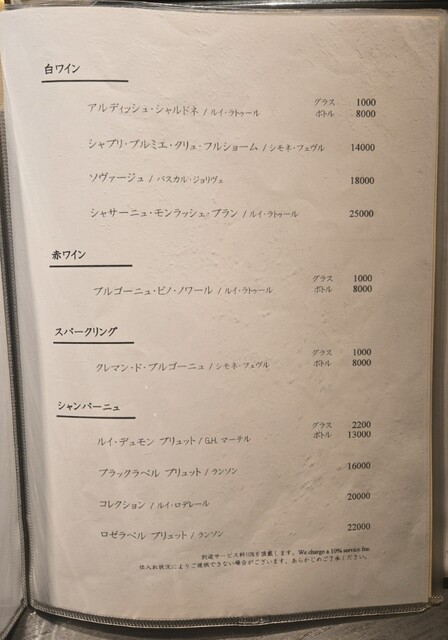 白ワイン
アルディッシュ・シャルドネ / ルイ・ラトゥール グラス 1000
ボトル 8000
シャブリ・プルミエ・クリュ・フルショーム / シモネ・フェヴル 14000
ソヴァージュ / パスカル・ジョリヴェ 18000
シャサーニュ・モンラッシェ・ブラン / ルイ・ラトゥール 25000
赤ワイン
ブルゴーニュ・ピノ・ノワール / ルイ・ラトゥール グラス 1000
ボトル 8000
スパークリング
クレマン・ド・ブルゴーニュ / シモネ・フェヴル グラス 1000
ボトル 8000
シャンパーニュ
ルイ・デュモン ブリュット / G.H. マーテル グラス 2200
ボトル 13000
ブラックラベル ブリュット / ランソン 16000
コレクション / ルイ・ロデレール 20000
ロゼラベル ブリュット / ランソン 22000
別途サービス料10%を頂戴します。We charge a 10% service fee.
仕入れ状況によりご提供できない場合がございます。あらかじめご了承ください。